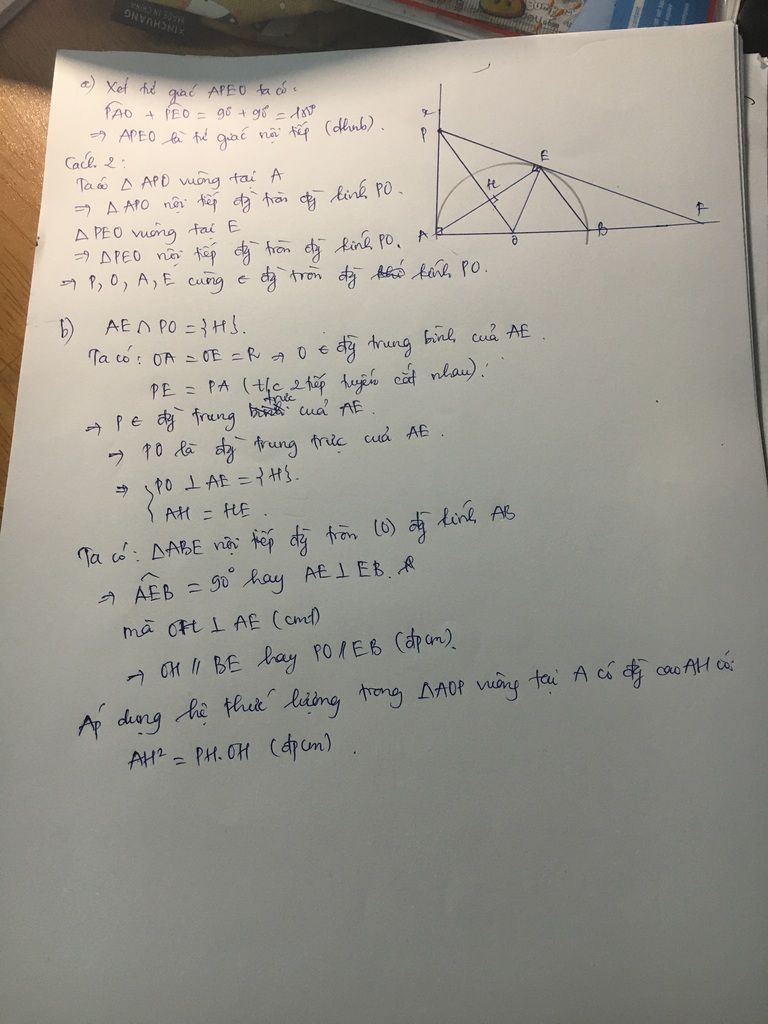 XINCHUANG
MADE IN CHINA
a) Xét tứ giác APEO ta có:
PAO + PEO = 90° + 90° = 180°
⇒ APEO là tứ giác nội tiếp (dhnb).
Cách 2:
Ta có △ APO vuông tại A
⇒ △ APO nội tiếp đg tròn đg kính PO.
△ PEO vuông tại E
⇒ △PEO nội tiếp đg tròn đg kính PO.
⇒ P, O, A, E cùng ∈ đg tròn đg kính PO.
x
P
E
H
A
O
B
F
b) AE ∩ PO = {H}.
Ta có: OA = OE = R ⇒ O ∈ đg trung bình của AE.
PE = PA (t/c 2 tiếp tuyến cắt nhau).
⇒ P ∈ đg trung trực của AE.
⇒ PO là đg trung trực của AE.
⇒ { PO ⊥ AE = {H}.
AH = HE.
Ta có: △ABE nội tiếp đg tròn (O) đg kính AB
⇒ AEB = 90° hay AE ⊥ EB.
mà OH ⊥ AE (cmt)
⇒ OH // BE hay PO // EB (đpcm).
Áp dụng hệ thức lượng trong △AOP vuông tại A có đg cao AH có:
AH² = PH.OH (đpcm).